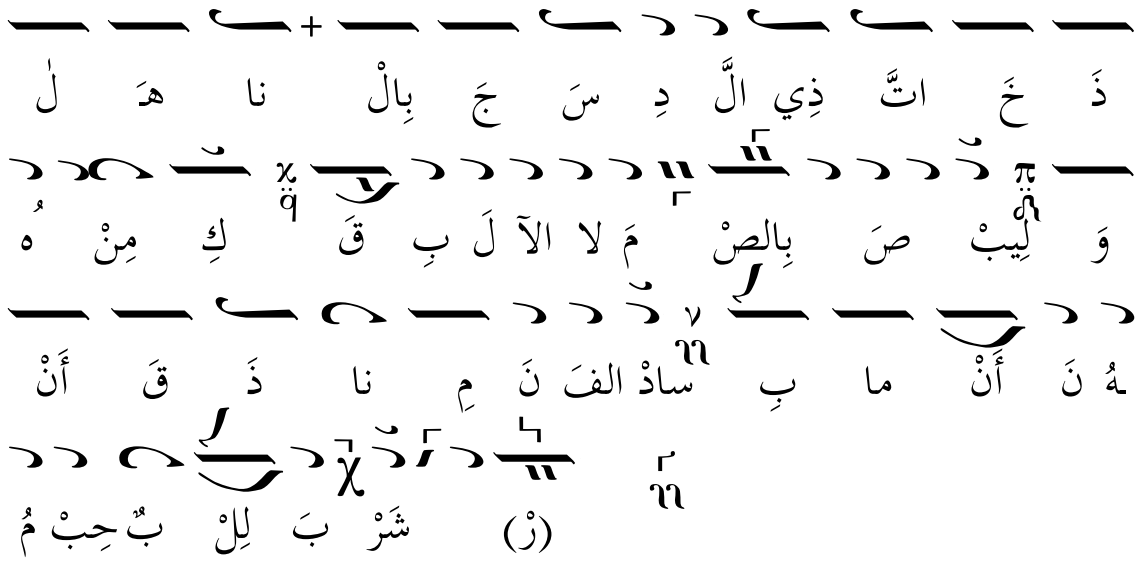 لٰ هـَ نا بِالْ جَ سَ دِ الَّ ذِي اتَّ خَ ذَ
هُ مِنْ كِ قَ بِ لَ الآ لا مَ بِالصْ صَ لِيبْ وَ
أَنْ قَ ذَ نا مِ نَ الفَ سادْ بِ ما أَنْ نَ ـهُ
مُ حِبْ بٌ لِلْ بَ شَرْ (رْ)